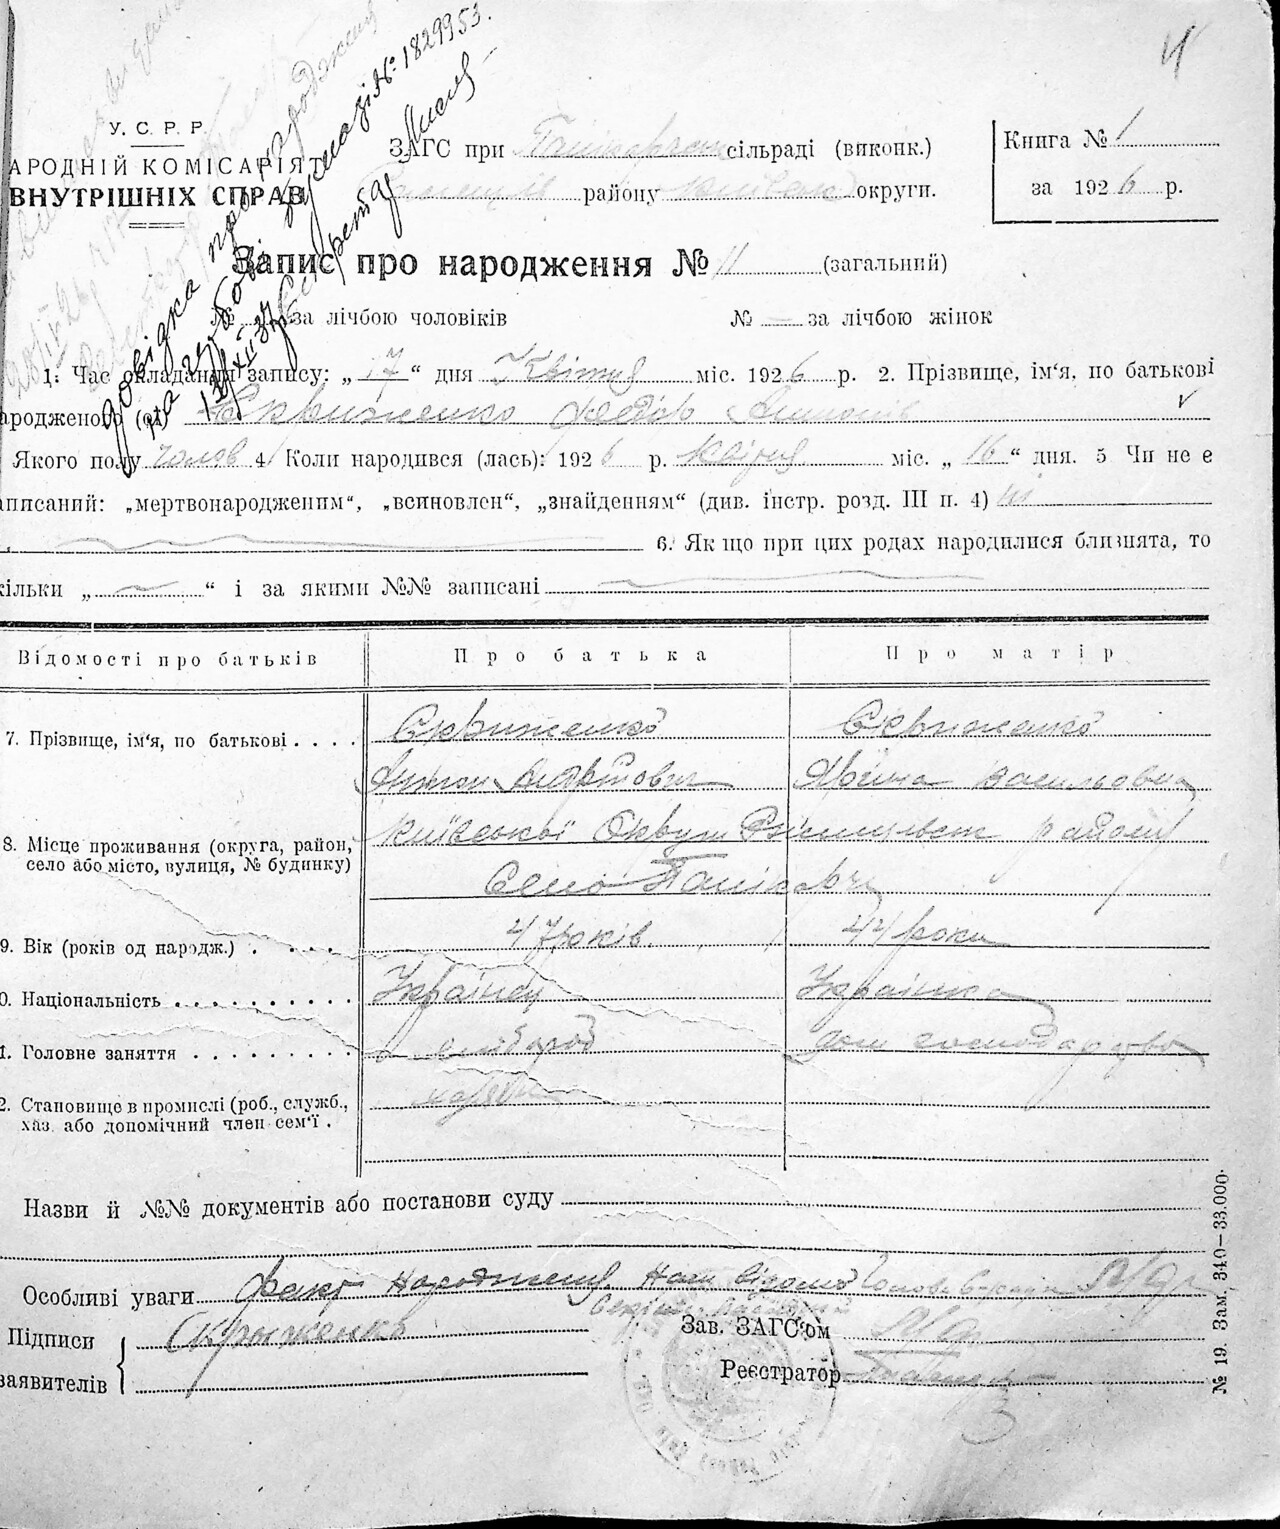 4
У. С. Р. Р.
АРОДНІЙ КОМІСАРІЯТ
ВНУТРІШНІХ СПРАВ
ЗАГС при сільраді (виконк.)
району округи.
Книга № 1
за 1926 р.
Довідка про народження
на загубові документи № 1829953.
13/XII 37 Секретар
Запис про народження № 11 (загальний)
№ за лічбою чоловіків № — за лічбою жінок
1. Час складання запису: „17“ дня Квітня міс. 1926 р. 2. Прізвище, ім'я, по батькові
ародженого (ої) Скриженко Федір Антонів
Якого полу чолов 4. Коли народився (лась): 1926 р. Квітня міс. „16“ дня. 5 Чи не є
аписаний: „мертвонародженим“, „всиновлен“, „знайденням“ (див. інстр. розд. III п. 4) ні
6. Як що при цих родах народилися близнята, то
кільки „ “ і за якими №№ записані
Відомості про батьків Про батька Про матір
7. Прізвище, ім'я, по батькові . . . . Скриженко Скриженко
Антон Ярина Васильовна
8. Місце проживання (округа, район, село або місто, вулиця, № будинку) Київської Округи району
Село
9. Вік (років од народж.) . . . . . 47 років 44 роки
0. Національність . . . . . . . . . . Українец Українка
1. Головне заняття . . . . . . . . . хлібороб дом господарство
2. Становище в промислі (роб., служб.,
хаз. або допомічний член сем'ї .
Назви й №№ документів або постанови суду
Особливі уваги факт народження нам відомий Голова С-ради
Підписи Скрыженко Зав. ЗАГС'ом
заявителів Реєстратор
№ 19. Зам. 340—33.000.